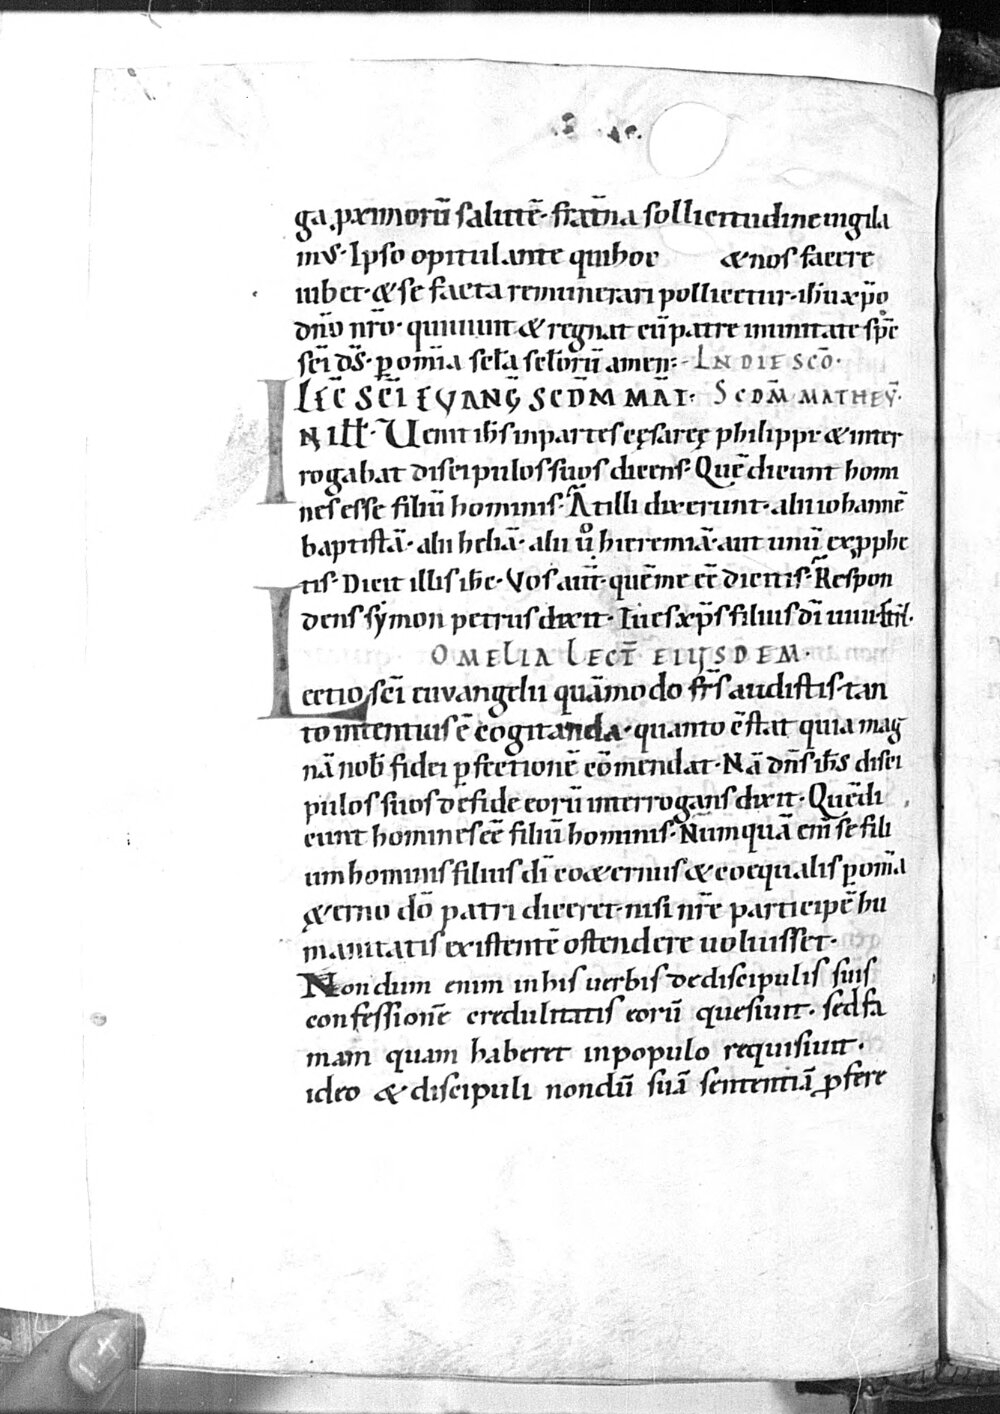 ga ꝓximorū salutē· frat̄na sollicitudine inuigila
mus· Ipso opitulante qui hoc & nos facere
iubet· & se facta remunerari pollicetur· ih̄u xp̄o
dn̄o nr̄o· qui uiuit & regnat cū patre in unitate sp̄c
sc̄i ds̄· ꝑ om̄ia sc̄la sc̄lorū amen:· IN DIE SC̄O·
LEC̄ SC̄I EVANḠ SCDM̄ MAT̄· SCDM̄ MATHEV̄·
IN illƚ· Uenit ih̄s in partes cęsaręę philippi & inter
rogabat discipulos suos dicens· Quē dicunt homi
nes esse filiū hominis· At illi dixerunt· alii iohannē
baptistā· alii heliā· alii ů hieremiā· aut unū ex ꝓphe
tis· Dicit illis ih̄c· Vos aut̄· quē me eē dicitis· Respon
dens symon petrus dixit· Tu es xp̄s filius dī uiui·
OMELIA LECT̄ EIUSDEM·
Lectio sc̄i euuangelii quā modo frs̄ audistis· tan
to intentius ē cogitanda· quanto c̄stat quia mag
nā nob̄ fidei ꝑfectionē cōmendat· Nā dn̄s ih̄s disci
pulos suos de fide eorū interrogans dixit· Quē di
cunt homines eē filiū hominis· Nūmquā eni̅ se fili
um hominis filius dī coæternus & coequalis ꝑ om̄ia
&erno dō patri diceret· nisi nr̄e participē hu
manitatis existentē ostendere uoluisset·
Nondum enim in his uerbis de discipulis suis
confessionē credulitatis eorū quesiuit· sed fa
mam quam haberet in populo requisiuit·
ideo & discipuli nondū suā sententiā ꝓfere